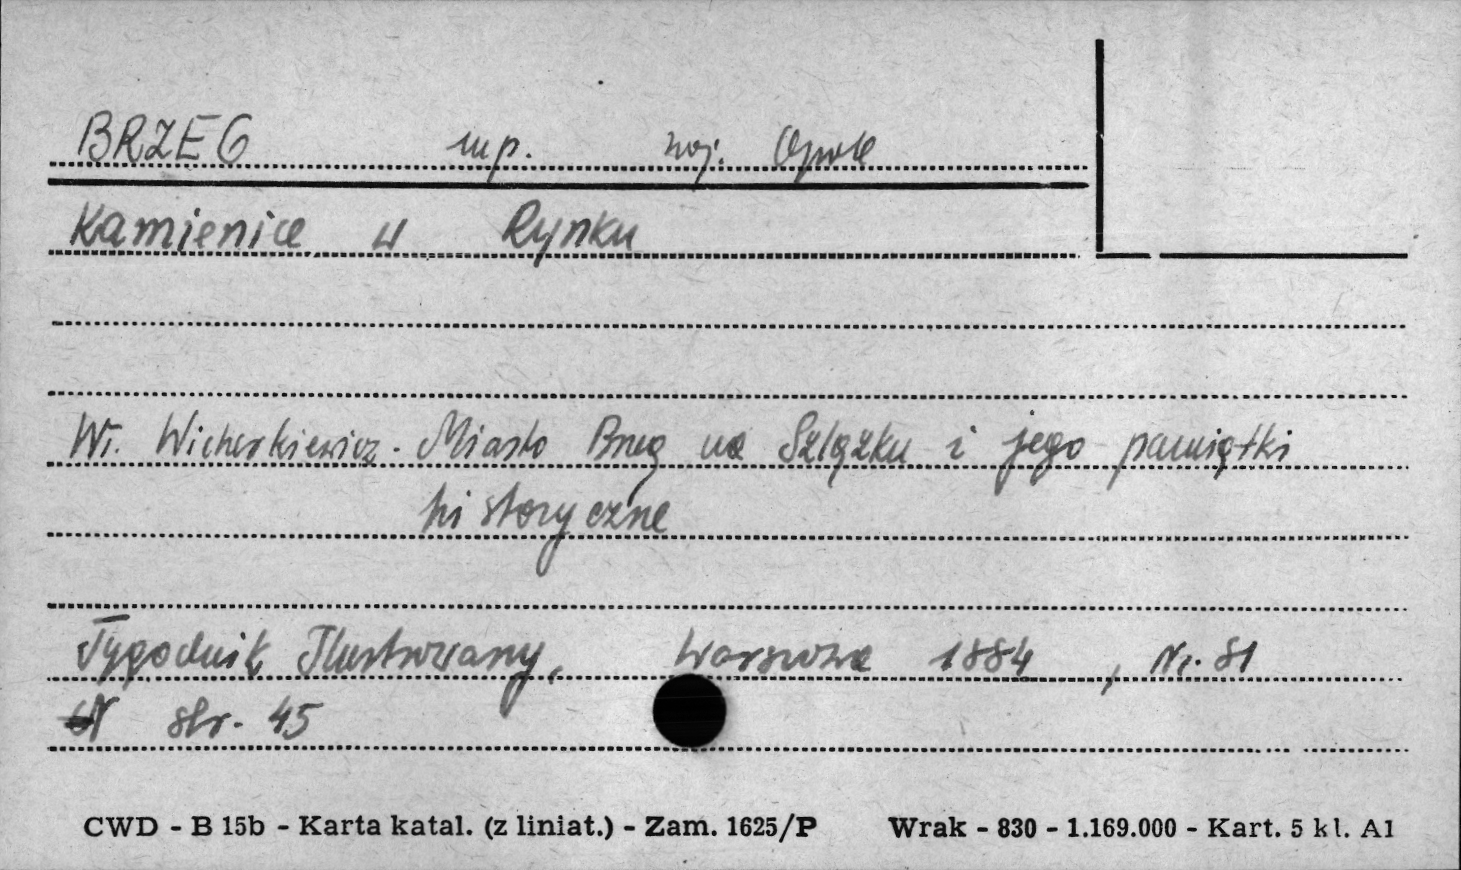 BRZEG mp. woj. Opole
Kamienice w Rynku
Wł. Wicherkiewicz. Miasto Brzeg na Szlązku i jego pamiątki
historyczne
Tygodnik Ilustrowany, Warszawa 1884, Nr. 81
str. 45
CWD - B 15b - Karta katal. (z liniat.) - Zam. 1625/P Wrak - 830 - 1.169.000 - Kart. 5 kl. A1